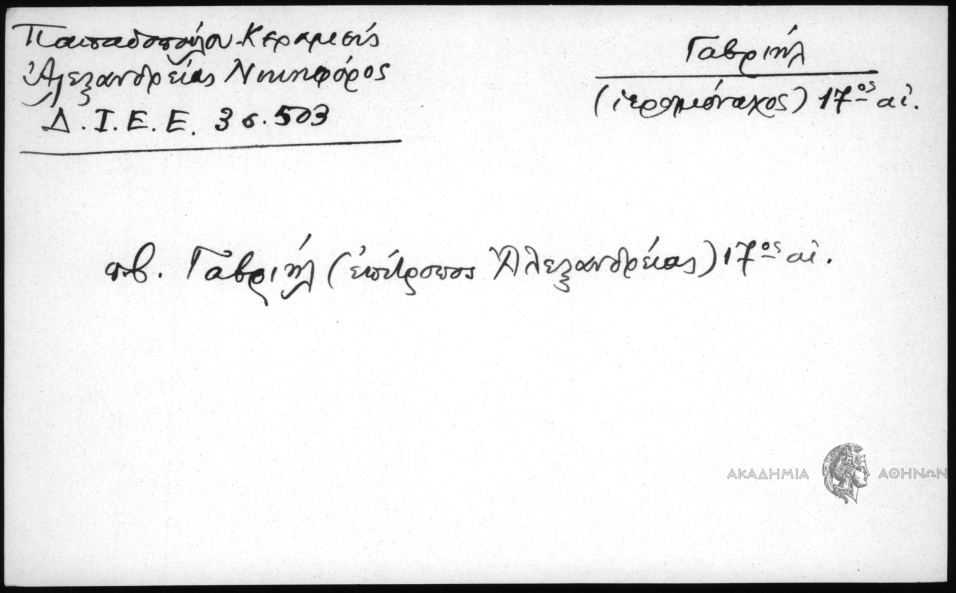 Παπαδοπούλου-Κεραμεύς
Ἀλεξανδρείας Νικηφόρος
Δ. Ι. Ε. Ε. 3 σ. 503
Γαβριήλ
(ἱερομόναχος) 17ος αἰ.
πβ. Γαβριήλ (ἐπίτροπος Ἀλεξανδρείας) 17ος αἰ.
ΑΚΑΔΗΜΙΑ ΑΘΗΝΩΝ